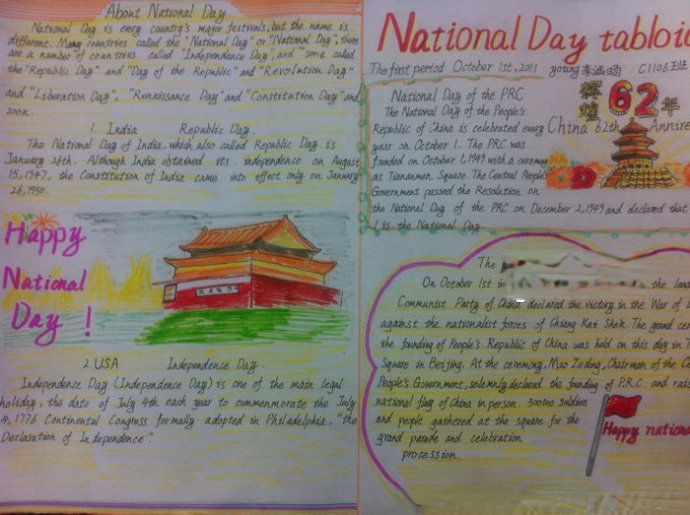 About National Day.
National Day is every country's major festivals, but the name is
different. Many countries called the "National Day" or "National Day", there
are a number of countries called "Independence Day", and "some called
the "Republic Day" and "Day of the Republic" and "Revolution Day"
and "Liberation Day", "Renaissance Day" and "Constitution Day" and
soon.
1. India Republic Day.
The National Day of India, which also called Republic Day is
January 26th. Although India obtained its independence on August
15, 1947, the Constitution of India came into effect only on January
26, 1950.
Happy
National
Day !
2. USA Independence Day.
Independence Day (Independence Day) is one of the main legal
holiday, the date of July 4th each year to commemorate the July
4, 1776 Continental Congress formally adopted in Philadelphia, "the
Declaration of Independence".
National Day tabloid
The first period October 1st, 2011 young C1106班
National Day of the PRC
The National Day of the People's
Republic of China is celebrated every
year on October 1. The PRC was
founded on October 1, 1949 with a ceremony
at Tiananmen Square. The Central People's
Government passed the Resolution on
the National Day of the PRC on December 2, 1949 and declared that
1 is the National Day.
辉煌62年
China 62th Annive
The
On October 1st in the
Communist Party of China declared the victory in the War of
against the nationalist forces of Chiang Kai Shek. The grand
the founding of People's Republic of China was held on this day in
Square in Beijing. At the ceremony, Mao Zedong, Chairman of the
People's Government, solemnly declared the founding of P.R.C. and
national flag of China in person. 300000 soldies
and people gathered at the square for the
grand parade and celebration
procession.
Happy nation